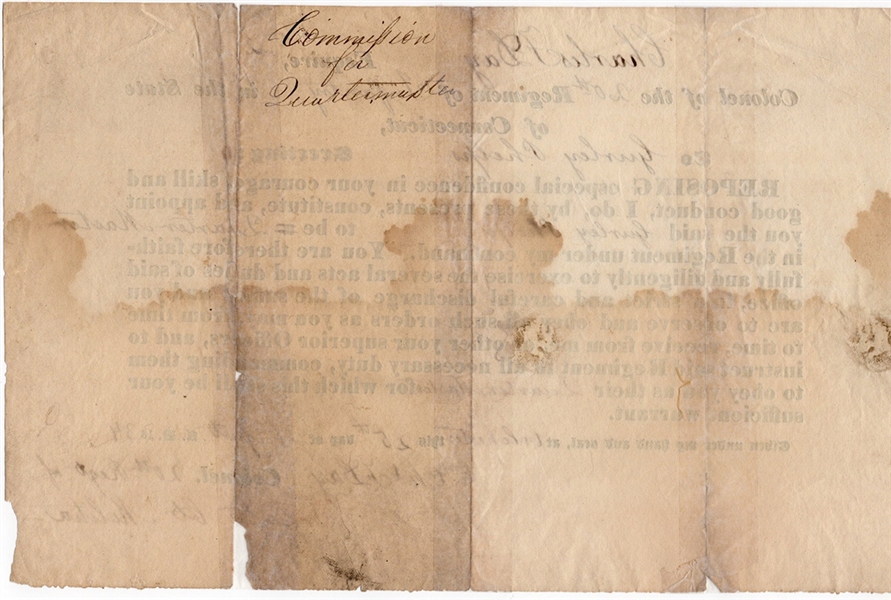 Commission
for
Quartermaster
Charles Day Esquire,
Colonel of the 20th Regiment of in the State
of Connecticut,
To Gurley Phelps Greeting
REPOSING especial confidence in your courage, skill and
good conduct, I do, by these presents, constitute, and appoint
you the said Gurley to be = Quarter Master
in the Regiment under my command. You are therefore faith-
fully and diligently to exercise the several acts and duties of said
office, and careful discharge of the same, and you
are to observe and obey such orders as you may from time
to time, receive from me, or other your superior Officers, and to
instruct said Regiment in all necessary duty, commanding them
to obey you as their Quarter Master for which this shall be your
sufficient warrant.
Given under my hand and seal, at this 25th day of
Day Colonel. 20th Regt of
Militia